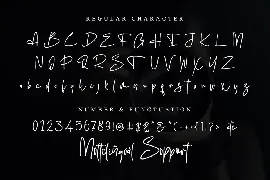 REGULAR CHARACTER
A B C D E F G H I J K L M
N O P Q R S T U V W X Y Z
a b c d e f g h i j k l m n o p q r s t u v w x y z
NUMBER & PUNCTUATION
0123456789
Multilingual Support